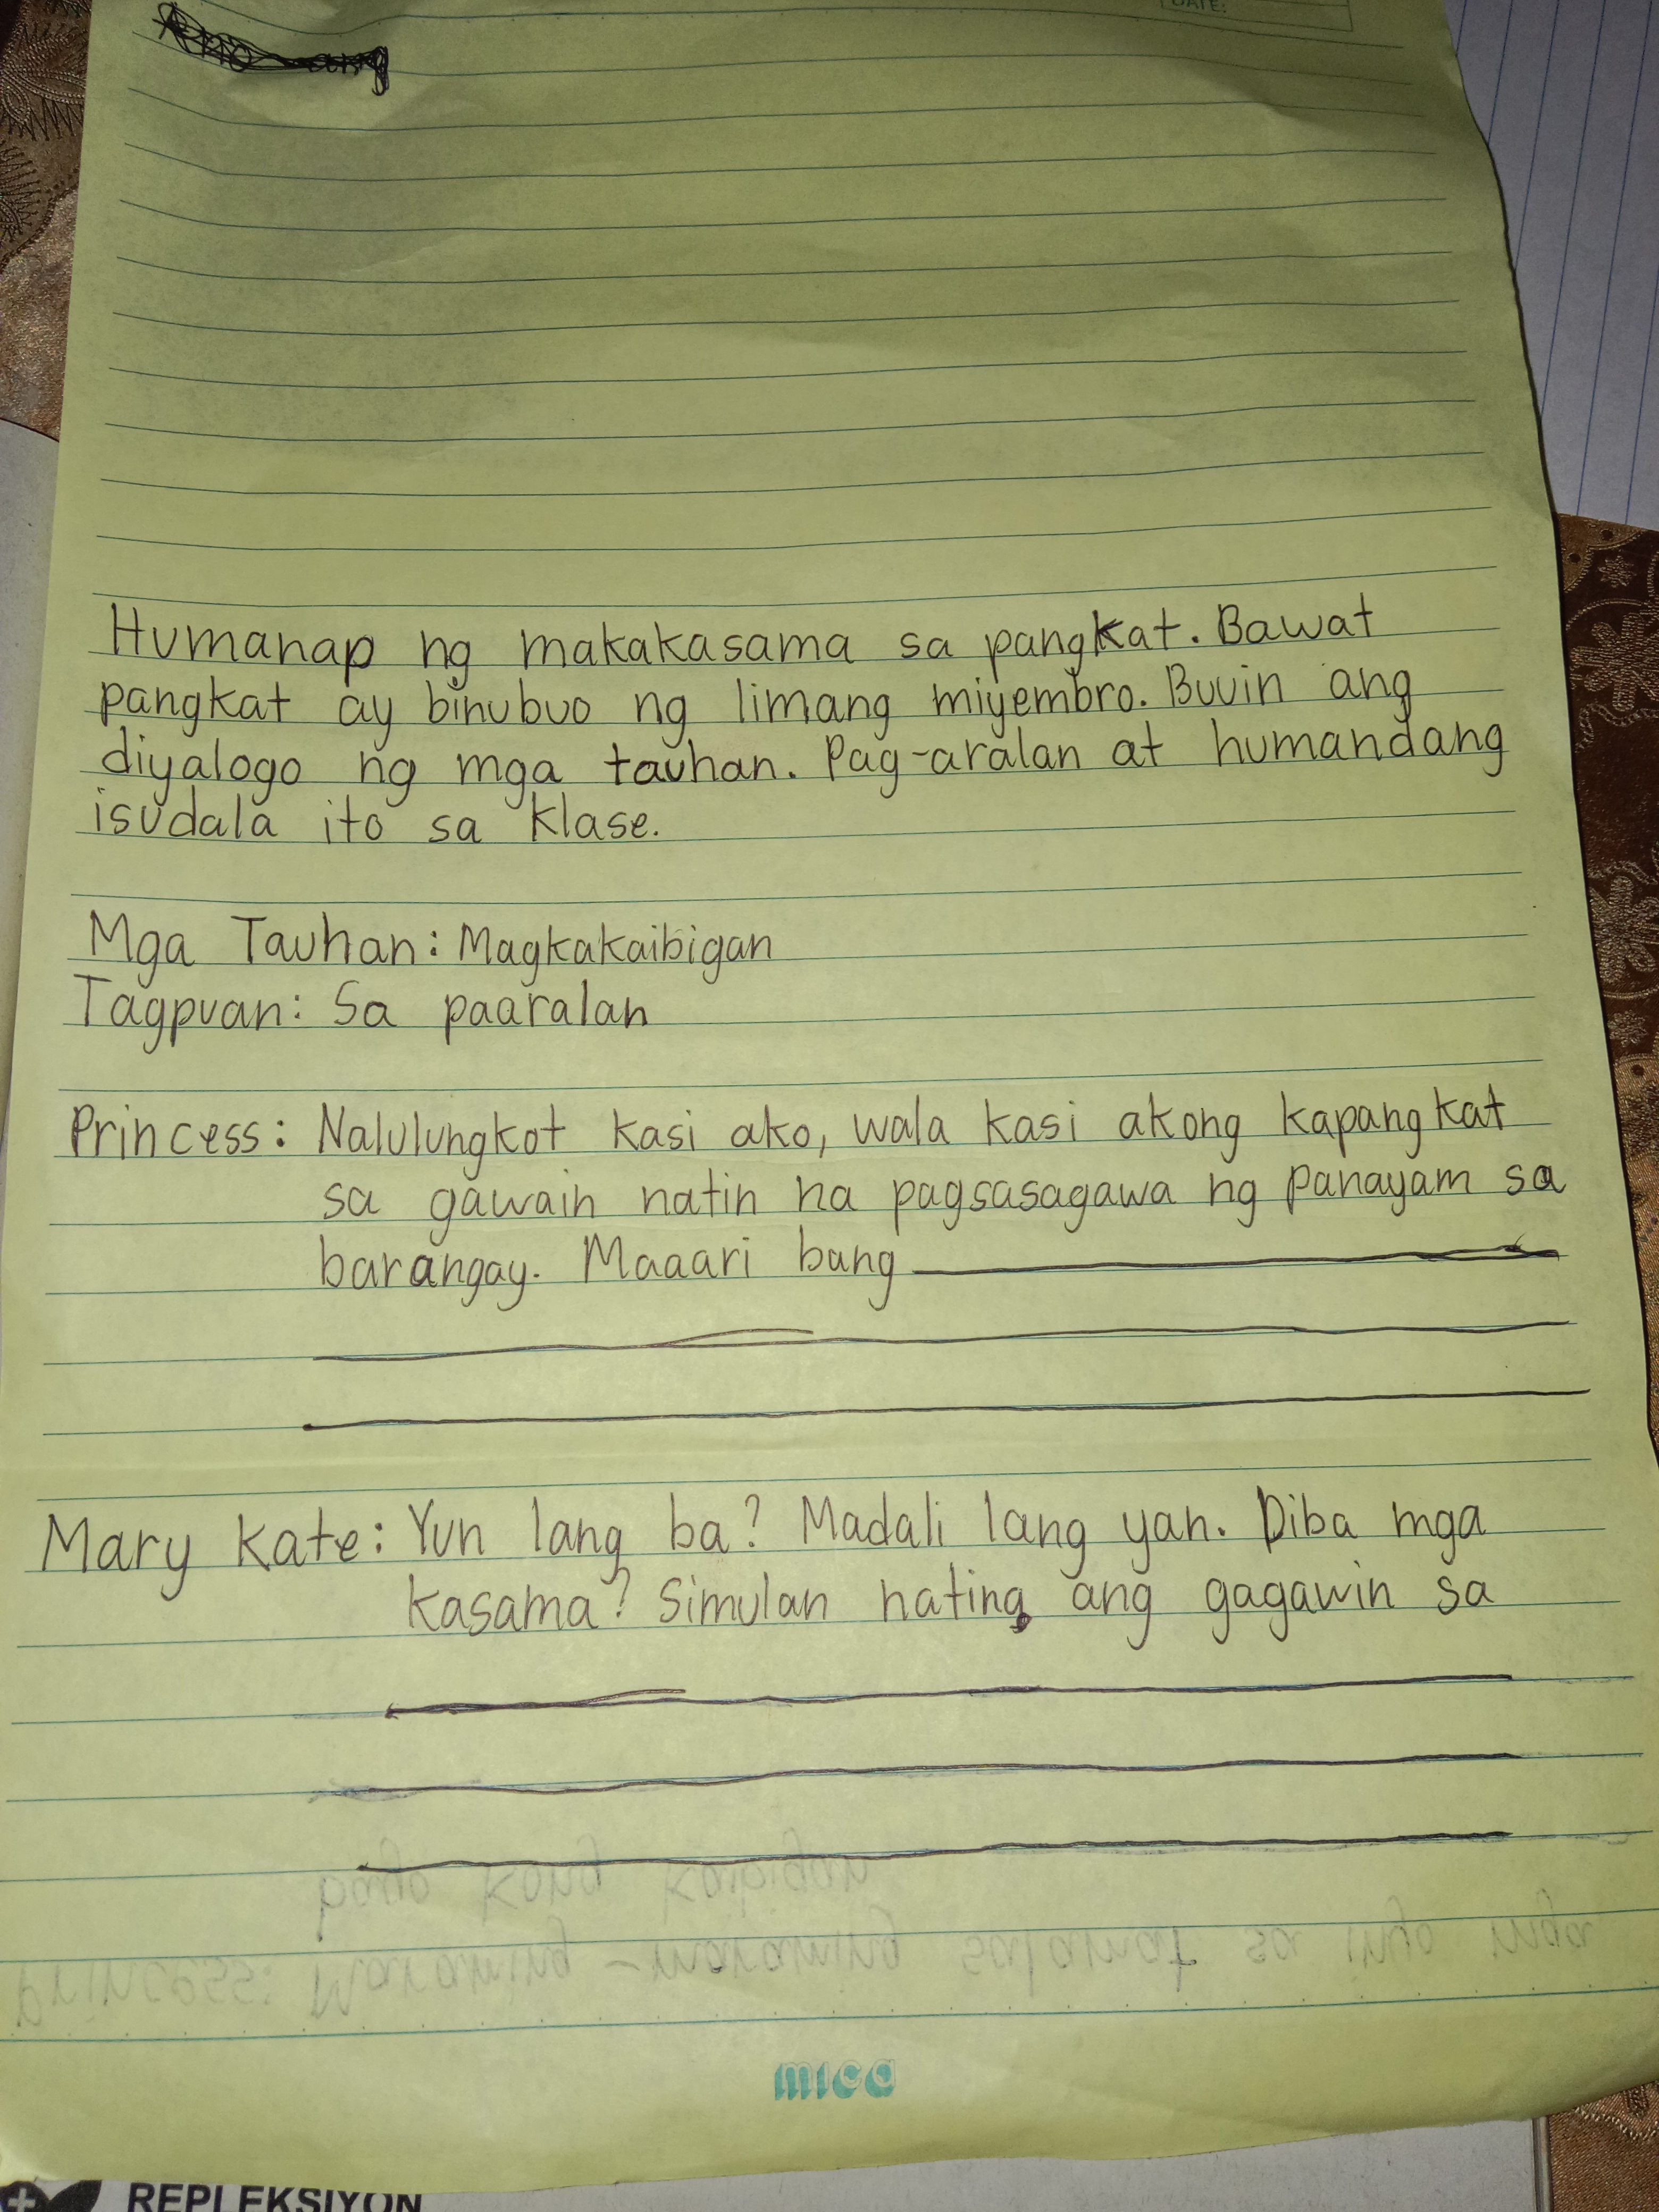 DATE:
Humanap ng makakasama sa pangkat. Bawat
pangkat ay binubuo ng limang miyembro. Buuin ang
diyalogo ng mga tauhan. Pag-aralan at humandang
isudala ito sa klase.
Mga Tauhan: Magkakaibigan
Tagpuan: Sa paaralan
Princess: Nalulungkot kasi ako, wala kasi akong kapangkat
sa gawain natin na pagsasagawa ng panayam sa
barangay. Maaari bang
Mary Kate: Yun lang ba? Madali lang yan. Diba mga
kasama? Simulan nating ang gagawin sa
bago kong kaibigan
Princess: Maraming-maraming salamat sa inyo mga
mica
REPLEKSIYON